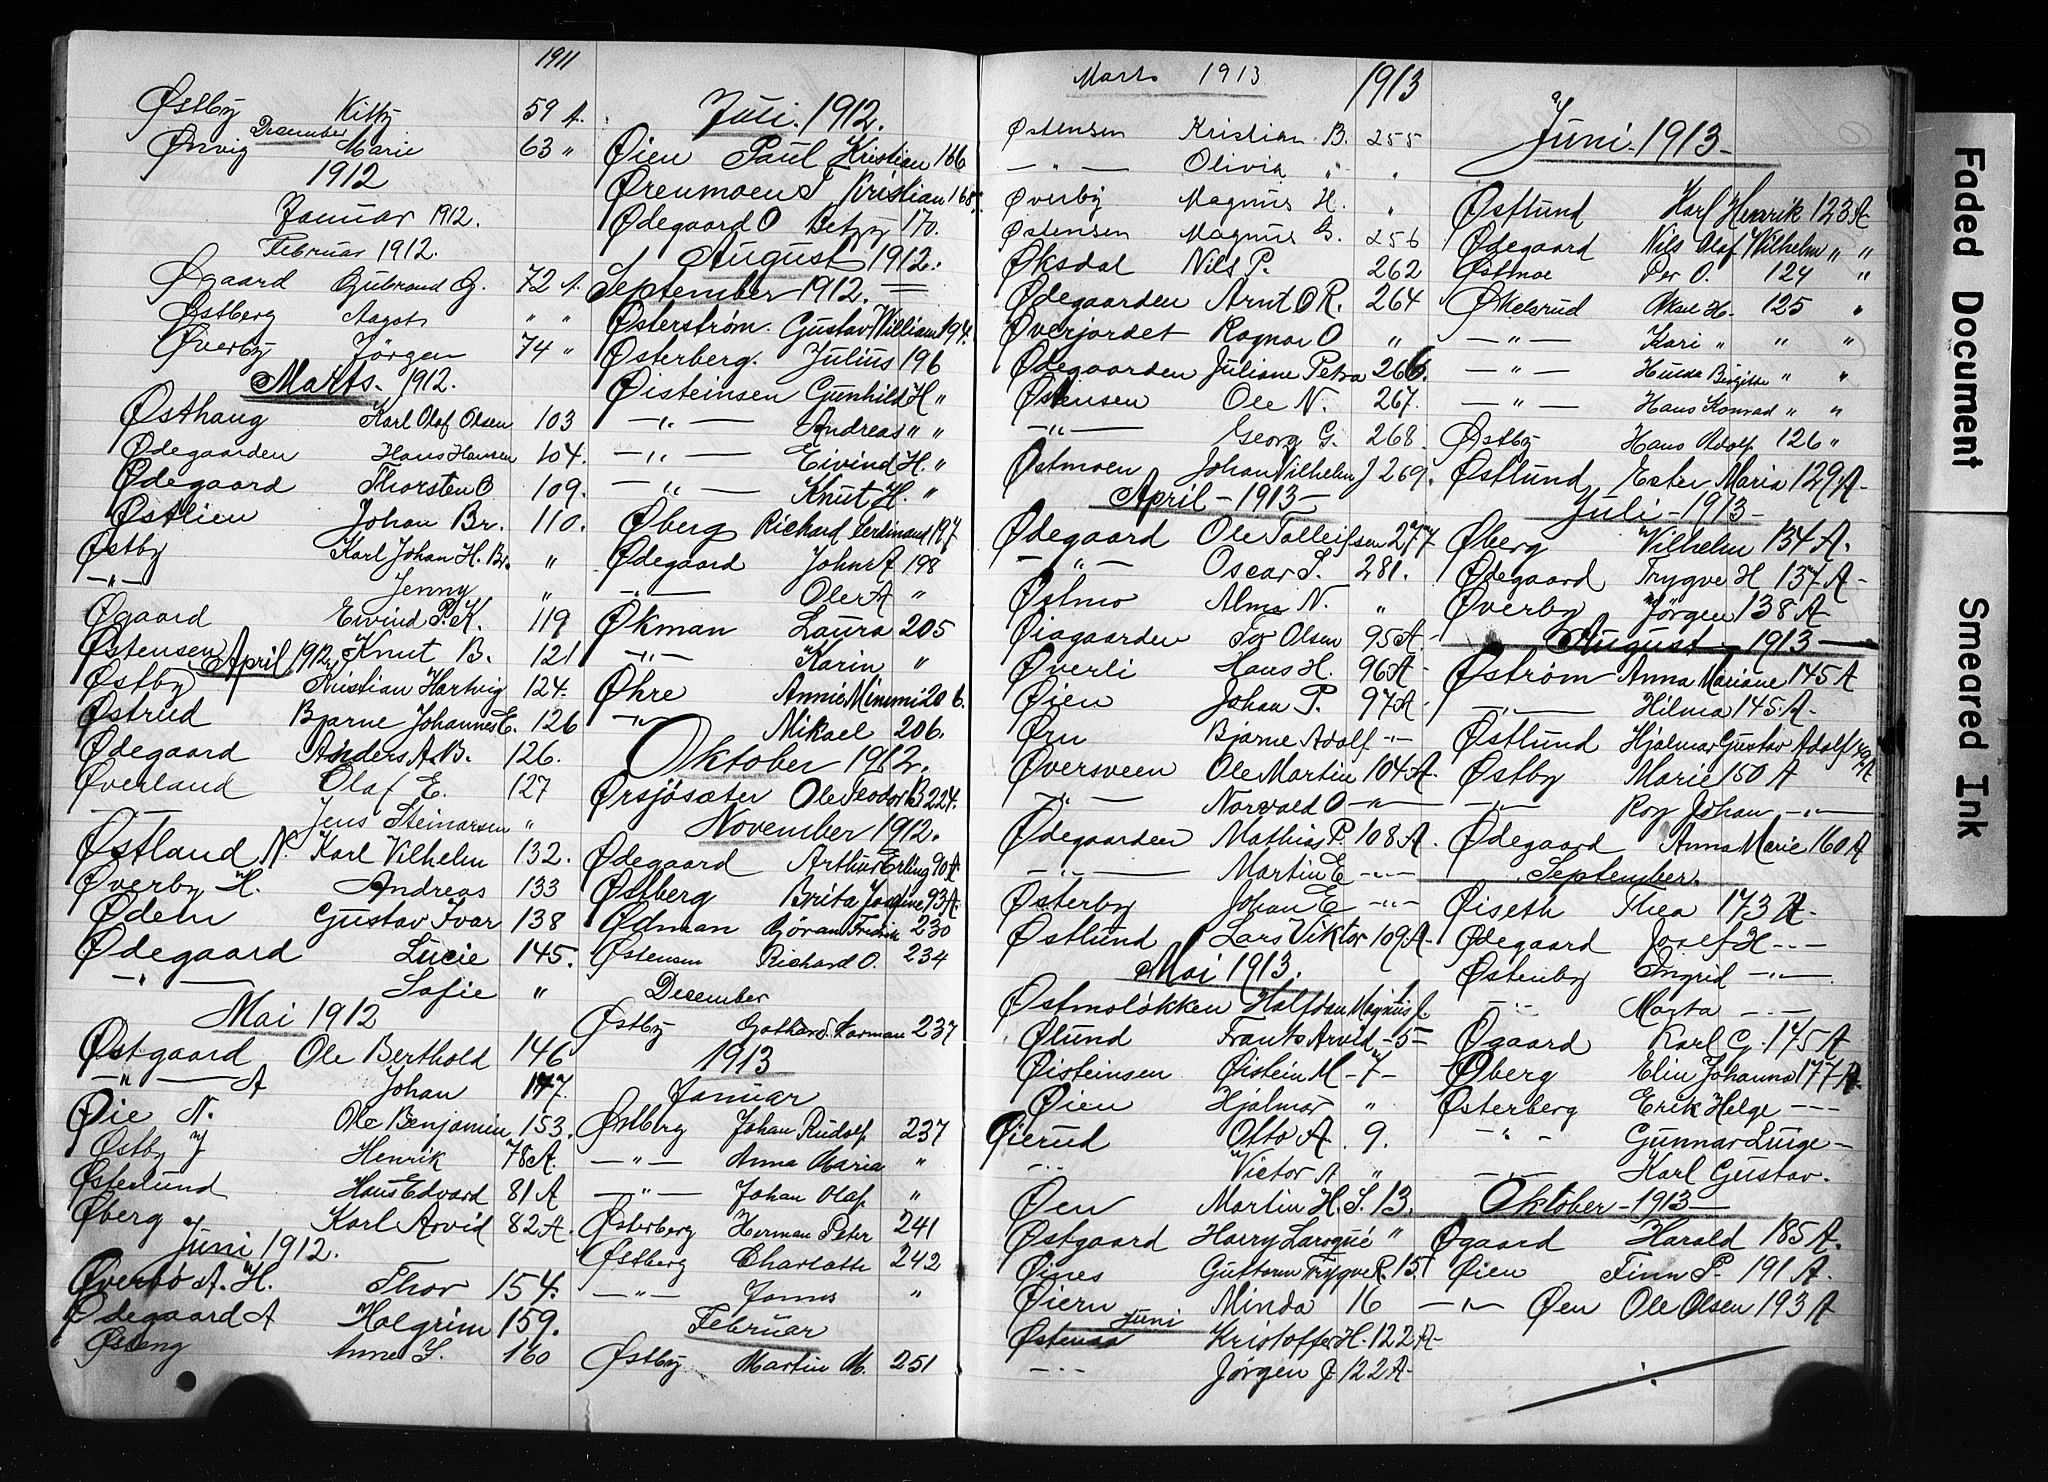 1911
Østby Kitty 59 A.
Desember
Ørvig Marie 63 "
1912
Januar 1912.
Februar 1912.
Øgaard Gubrand G. 72 A.
Østberg Aagot " "
Øverby Jörgen 74 "
Marts 1912.
Østhaug Karl Olaf Olsen 103
Ødegaarden Hans Hansen 104.
Ødegaard Thorsten O. 109.
Østlien Johan Br. 110.
Østby Karl Johan H. Br. "
— " — Jenny "
Øgaard Eivind P. K. 119
Østensen Knut B. 121
April 1912
Østby Kristian Hartvig 124.
Østrud Bjarne Johannes E. 126
Ødegaard Anders A. B. 126.
Øverland Olaf E. 127
— " — Jens Steinarsen "
Østland N. Karl Vilhelm 132.
Øverby H. Andreas 133
Ødem Gustav Ivar 138
Ødegaard Lucie 145.
— " — Sofie "
Mai 1912
Østgaard Ole Berthold 146
— " — A Johan 147.
Øie N. Ole Benjamin 153.
Østby J Henrik 78 A.
Østerlund Hans Edvard 81 A
Øberg Karl Arvid 82 A.
Juni 1912.
Øverbö A. H. Thor 154.
Ødegaard A Halgrim 159.
Østeng Anne S. 160
Juli. 1912.
Øien Paul Kristian 166
Ørenmoen T Kristian 168.
Ødegaard O Betzy 170.
August 1912.
September 1912.
Østerström. Gustav William 194.
Østerberg. Julius 196
Øisteinsen Gunhild H "
— " — Andreas " "
— " — Eivind H. "
— " — Knut H. "
Øberg Richard Ferdinand 197
Ødegaard John A 198
— " — Ole A "
Økman Laura 205
— " — Karin "
Øhre Annie Mimmi 206.
— " — Mikael 206.
Oktober 1912.
Ørsjösæter Ole Teodor B 224.
November 1912.
Ødegaard Arthur Erling 90 A.
Østberg Brita Josefine 93 A.
Ødman Göran Fredrik 230
Østensen Richard O. 234
Desember
Østby Gothard Norman 237
1913
Januar
Østberg Johan Rudolf 237
— " — Anna Maria "
— " — Johan Olaf "
Østerberg Herman Peter 241
Østberg Charlotte 242
— " — Jonas "
Februar
Østby Martin M. 251
Marts 1913 1913
Østensen Kristian B. 255
— " — Olivia " "
Øverby Magnus H. "
Østensen Magnus G. 256
Øksdal Nils P. 262
Ødegaarden Arnt O R. 264
Øverjordet Ragnar O "
Ødegaarden Juliane Petra 266.
Østensen Ole N. 267.
— " — Georg G. 268.
Østmoen Johan Vilhelm J 269.
April - 1913 -
Ødegaard Ole Tolleifsen 277
— " — Oscar S. 281.
Østmo Alma N. "
Øiagaarden Tor Olsen 95 A.
Øverli Hans H. 96 A -
Øien Johan P. 97 A -
Ørn Bjarne Adolf - " -
Øversveen Ole Martin 104 A.
— " — Norvald O — " —
Ødegaarden Mathias P. 108 A.
— " — Martin E - " -
Østerby Johan E - " -
Østlund Lars Viktor 109 A.
Mai 1913.
Østmoløkken Halfdan Magnus
Ølund Frants Arvid - 5 -
Øisteinsen Øistein M - 7 -
Øien Hjalmar "
Øierud Otto A. 9.
— " — Victor A "
Øen Martin H. S. 13.
Østgaard Harry Laroque "
Øines Guttorm Trygve R. 15
Øiern Minda 16
Juni
Østenaa Kristoffer H. 122 A -
— " — Jørgen J. 122 A -
Juni - 1913 -
Østlund Karl Henrik 123 A
Ødegaard Nils Olaf Vilhelm " "
Østmoe Per O. 124 "
Økelsrud Aksel H. 125 "
— " — Kari " " "
— " — Hulda Birgitte " "
— " — Hans Konrad " "
Østby Hans Adolf 126 "
Østlund Ester Maria 129 A -
Juli - 1913 -
Øberg Vilhelm 134 A.
Ødegaard Trygve H 137 A -
Øverby Jörgen 138 A
August 1913
Øström Anna Mariane 145 A
— " — Hilma 145 A -
Østlund Hjalmar Gustav Adolf 149 A
Østby Marie 150 A
— " — Roy Johan — " —
Ødegaard Anna Marie 160 A
September.
Øiseth Thea 173 A -
Ødegaard Josef H - " -
Østenby Ingrid - " -
— " — Marta - " -
Øgaard Karl G. 175 A
Øberg Elin Johanna 177 A -
Østerberg Erik Helge - " -
— " — Gunnar Luige -
— " — Karl Gustav.
Oktober - 1913 -
Øgaard Harald 185 A.
Øien Finn P. 191 A.
— " — Øen Ole Olsen 193 A
Faded Document
Smeared Ink